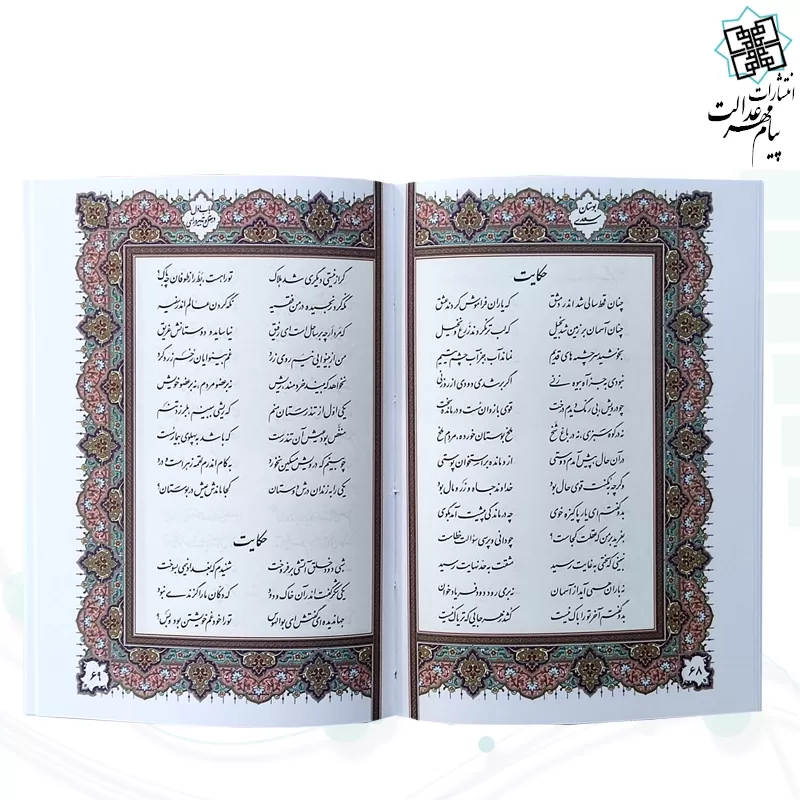 انتشارات
پیام مهر عدالت
بوستان
سعدی
حکایت
چنان قحط سالی شد اندر دمشق که یاران فراموش کردند عشق
چنان آسمان بر زمین شد بخیل که لب تر نکردند زرع و نخیل
بخوشید سرچشمه‌های قدیم نماند آب جز آب چشم یتیم
نبودی به جز آه بیوه زنی اگر بر شدی دودی از روزنی
چو درویش بی رنگ دیدم درخت قوی بازوان سست و درمانده سخت
نه در کوه سبزی، نه در باغ شخ ملخ بوستان خورده، مردم ملخ
در آن حال پیش آمدم دوستی از او مانده بر استخوان پوستی
وگرچه به مکنت قوی حال بود خداوند جاه و زر و مال بود
بدو گفتم ای یار پاکیزه خوی چه درماندگی پیشت آمد بگوی
بغرید بر من که عقلت کجاست؟ چو دانی و پرسی سؤالت خطاست
نبینی که سختی به غایت رسید مشقت به حد نهایت رسید
نه باران همی آید از آسمان نه بر می‌رود دود فریاد خوان
بدو گفتم آخر تو را باک نیست کشد زهر جایی که تریاک نیست
۶۸
باب اول
در عدل و تدبیر و رای
گر از نیستی دیگری شد هلاک تو را هست، بط را ز طوفان چه باک؟
نگه کرد رنجیده در من فقیه نگه کردن عالم اندر سفیه
که مرد ار چه بر ساحل است ای رفیق نیاساید و دوستانش غریق
من از بینوایی نیم روی زرد غم بینوایان رخم زرد کرد
نخواهد که بیند خردمند، ریش نه بر عضو مردم، نه بر عضو خویش
یکی اول از تندرستان منم که ریشی ببینم بلرزد تنم
منغص بود عیش آن تندرست که باشد به پهلوی بیمار سست
چو بینم که درویش مسکین نخورد به کام اندرم لقمه زهر است و درد
یکی را به زندان درش دوستان کجا ماندش عیش در بوستان؟
حکایت
شبی دود خلق آتشی برفروخت شنیدم که بغداد نیمی بسوخت
یکی شکر گفت اندر آن خاک و دود که دکان ما را گزندی نبود
جهاندیده‌ای گفتش ای بوالهوس تو را خود غم خویشتن بود و بس؟
۶۹